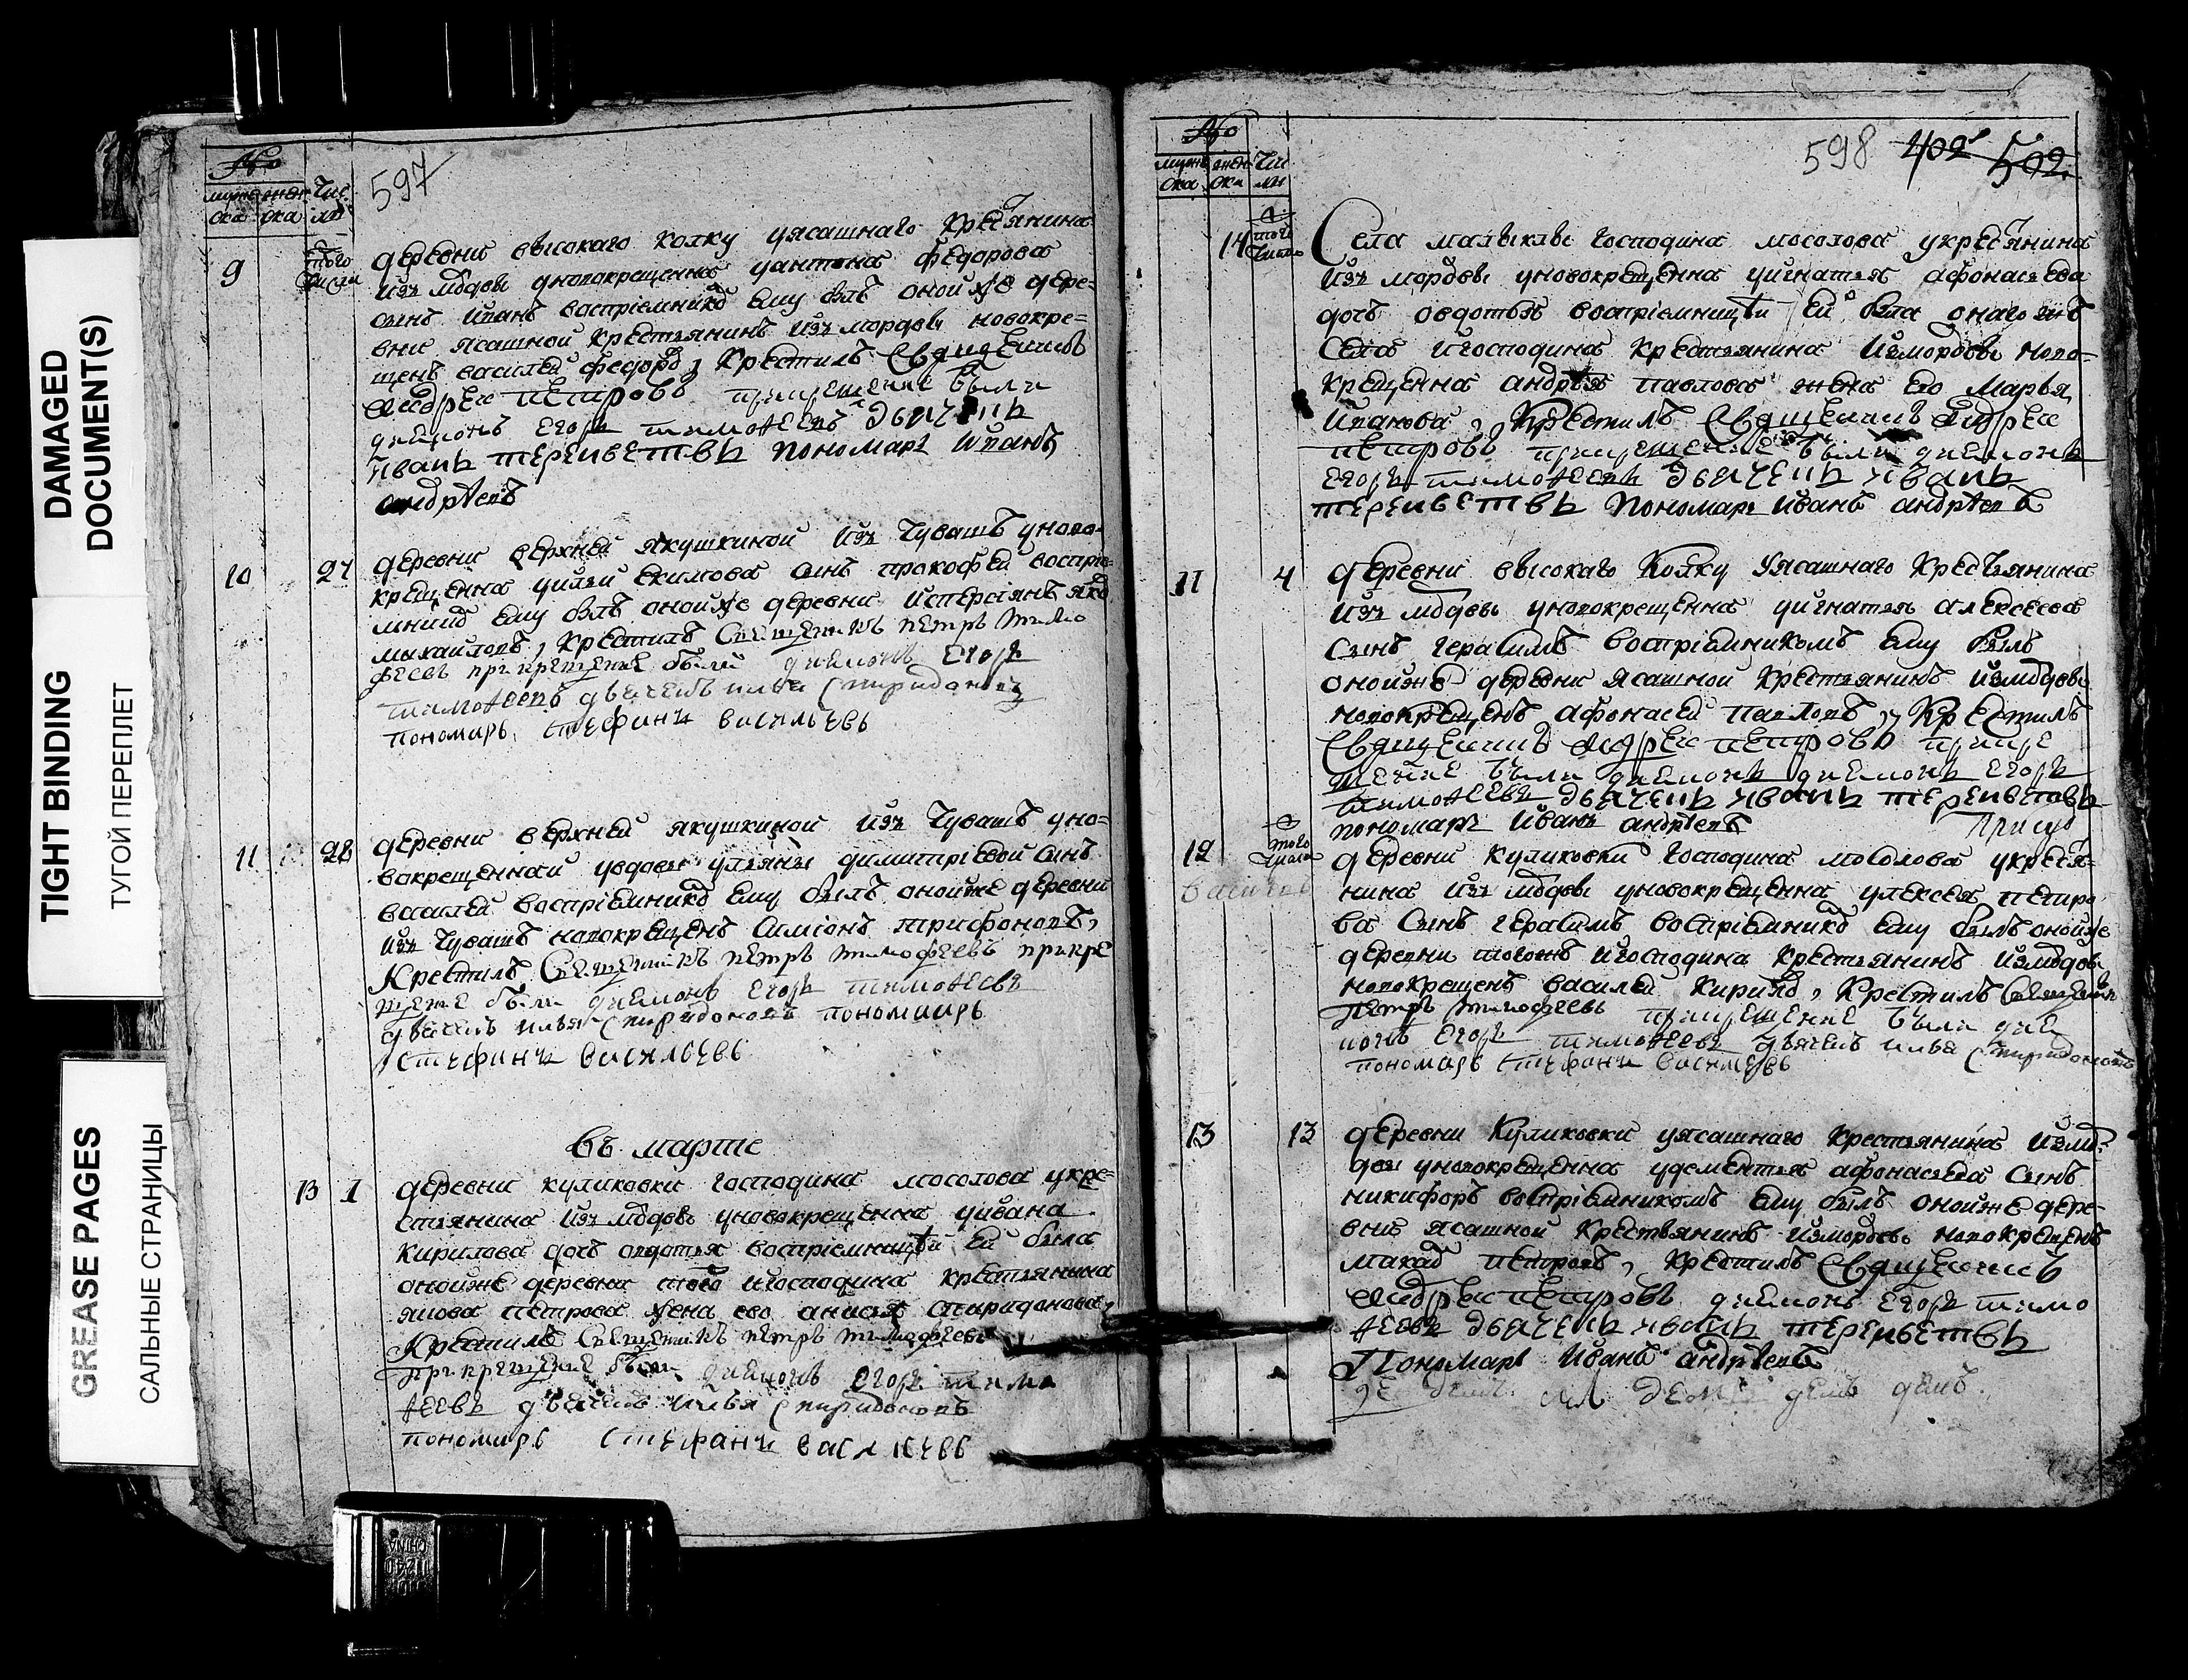 DAMAGED
DOCUMENT(S)
TIGHT BINDING
ТУГОЙ ПЕРЕПЛЕТ
GREASE PAGES
САЛЬНЫЕ СТРАНИЦЫ
№
мужеска женска числа
597
9 того числа
деревни высокаго колку уясашнаго крестянина
изъ мордвы уновокрещенна уантона федорова
сынъ иванъ восприемникомъ ему былъ оной же дере-
вни ясашной крестьянинъ изъ мордвы новокре-
щенъ василей федоровъ, крестилъ священникъ
андреи петровъ прикрещение были
диаконъ егоръ тимофеевъ дьячекъ
иванъ терентьетвъ пономарь иванъ
андреевъ
10 27
деревни верхней якушкиной изъ чувашъ уново-
крещенна екимова сынъ прокофей восприе-
мникомъ ему былъ онойже деревни
михаиловъ, крестилъ священникъ петръ тимо
феевъ прикрещение были диаконъ егоръ
тимофеевъ дьячекъ илья спиридоновъ
пономарь стефанъ васильевъ
11 28
деревни верхней якушкиной изъ чувашъ уно-
вокрещеннай увдовы ульяны димитриевой сынъ
василей восприемникомъ ему былъ онойже деревни
изъ чувашъ новокрещенъ симионъ трифоновъ,
крестилъ священникъ петръ тимофеевъ прикре
щение были диаконъ егоръ тимофеевъ
дьячекъ илья спиридоновъ пономарь
стефанъ васильевъ
въ марте
13 1
деревни куликовки господина мосолова укре-
стьянина изъ мордвы уновокрещенна уивана
кирилова дочь авдотья восприемницеи ей была
онойже деревни того игосподина крестьянина
якова петрова жена ево анисья спиридонова,
крестилъ священникъ петръ тимофеевъ
прикрещение были диаконъ егоръ тимо
феевъ дьячекъ илья спиридоновъ
пономарь стефанъ васильевъ
№
мужеска женска числа
598 402 502
14 того числа
Села малыклы господина мосолова укрестянина
изъ мордвы уновокрещенна уигнатья афонасьева
дочь овдотья восприемницеи ей была онаго же
села игосподина крестьянина измордвы ново-
крещенна андрея павлова жена ево марья
иванова, крестилъ священникъ андреи
петровъ прикрещение были диаконъ
егоръ тимофеевъ дьячекъ иванъ
терентьетвъ пономарь иванъ андреевъ
11 4
деревни высокаго колку уясашнаго крестьянина
изъ мордвы уновокрещенна уигнатья алексеева
сынъ герасимъ восприемникомъ ему былъ
онойже деревни ясашной крестьянинъ измордвы
новокрещенъ афонасей павловъ, крестилъ
священникъ андреи петровъ прикре
щение были диаконъ диаконъ егоръ
тимофеевъ дьячекъ иванъ терентьетвъ
пономарь иванъ андреевъ
12 того числа
деревни куликовки господина мосолова укрестя-
нина изъ мордвы уновокрещенна улексея петро
ва сынъ герасимъ восприемникомъ ему былъ онойже
деревни тогожъ игосподина крестьянинъ измордвы
новокрещенъ василей кириловъ, крестилъ священникъ
петръ тимофеевъ прикрещение были диа
конъ егоръ тимофеевъ дьячекъ илья спиридоновъ
пономарь стефанъ васильевъ
13 13
деревни куликовки уясашнаго крестьянина измор-
двы уновокрещенна удементья афонасьева сынъ
никифоръ восприемникомъ ему былъ онойже дере-
вни ясашной крестьянинъ измордвы новокрещенъ
макаръ петровъ, крестилъ священникъ
андреи петровъ диаконъ егоръ тимо
феевъ дьячекъ иванъ терентьетвъ
пономарь иванъ андреевъ